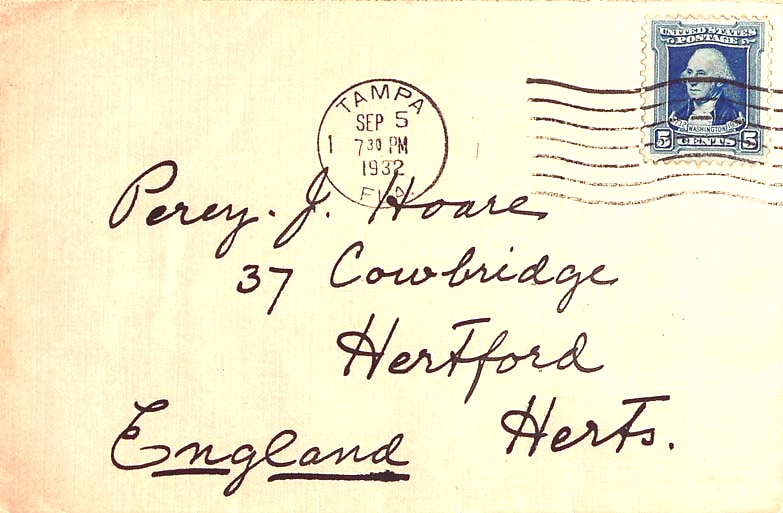 UNITED STATES
POSTAGE
WASHINGTON
5 CENTS 5
TAMPA
SEP 5
1 7 30 PM
1932
FLA
Percy. J. Hoare
37 Cowbridge
Hertford
Herts.
England